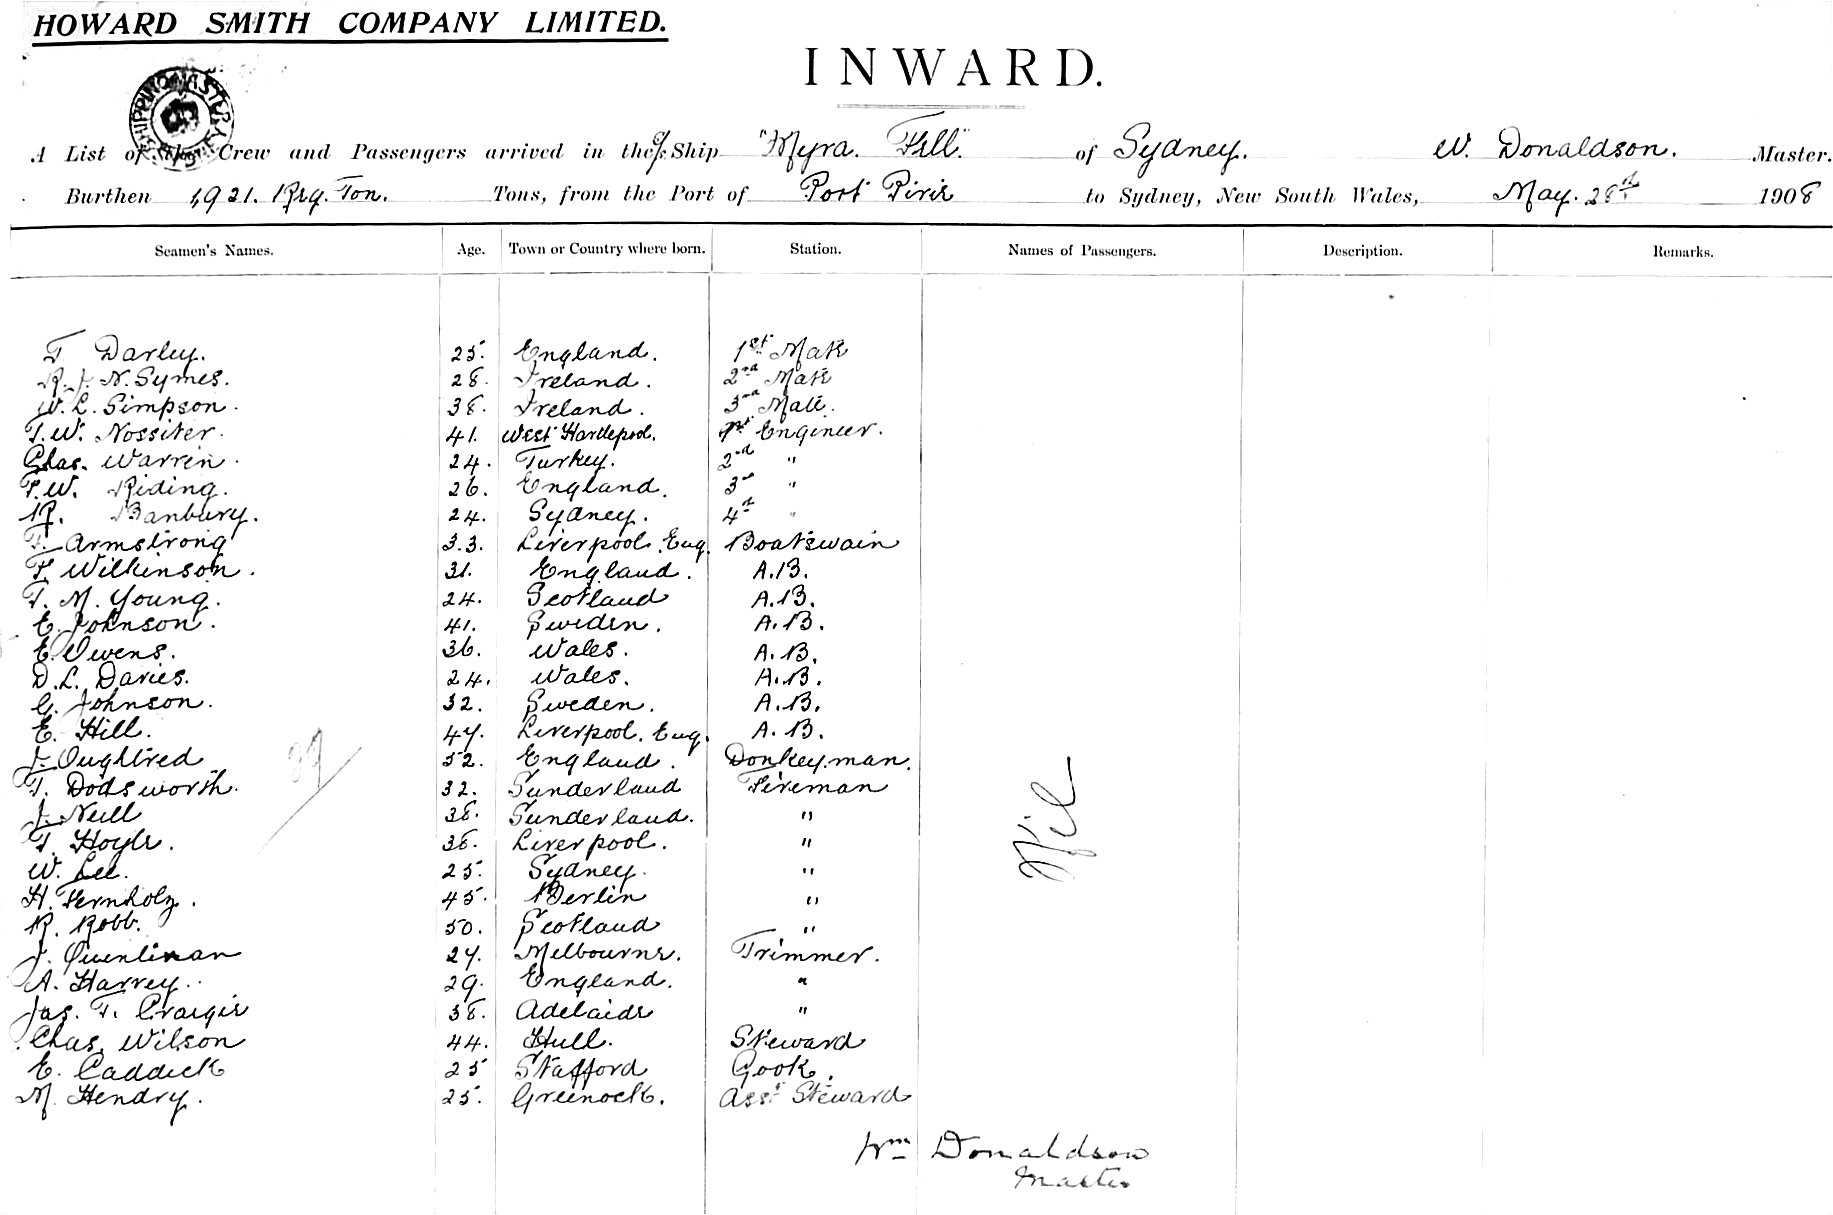 HOWARD SMITH COMPANY LIMITED.
INWARD.
A List of the Crew and Passengers arrived in the S/Ship "Myra Fell" of Sydney. W. Donaldson. Master.
Burthen 1,921. Reg. Ton. Tons, from the Port of Port Pirie to Sydney, New South Wales, May. 28th 1908
Seamen's Names. Age. Town or Country where born. Station. Names of Passengers. Description. Remarks.
T. Darley. 25. England. 1st Mate
R. J. N. Symes. 28. Ireland. 2nd Mate
W. L. Simpson. 38. Ireland. 3rd Mate.
T. W. Nossiter. 41. West Hartlepool. 1st Engineer.
Chas. Warren. 24. Turkey. 2nd "
T. W. Riding. 26. England. 3rd "
R. Banbury. 24. Sydney. 4th "
T. Armstrong 33. Liverpool. Eng. Boatswain
T. Wilkinson. 31. England. A.B.
T. M. Young. 24. Scotland A.B.
E. Johnson. 41. Sweden. A.B.
E. Owens. 36. Wales. A.B.
D. L. Davies. 24. Wales. A.B.
C. Johnson. 32. Sweden. A.B.
E. Hill. 47. Liverpool. Eng. A.B.
J. Oughtred 52. England. Donkeyman.
T. Dodsworth. 32. Sunderland Fireman
J. Neill 38. Sunderland. "
T. Hoyle. 38. Liverpool. "
W. Lee. 25. Sydney. "
H. Fernholz. 45. Berlin "
R. Robb. 50. Scotland "
J. Quenlinan 27. Melbourne. Trimmer.
A. Harvey. 29. England. "
Jas. T. Craigie 38. Adelaide "
Chas. Wilson 44. Hull. Steward
E. Caddick 25 Stafford Cook.
M. Hendry. 25. Greenock. Asst Steward
Nil
Wm Donaldson
Master